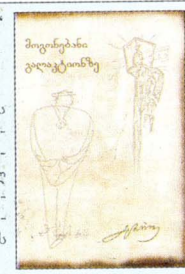 მოგონებანი
გალაკტიონზე